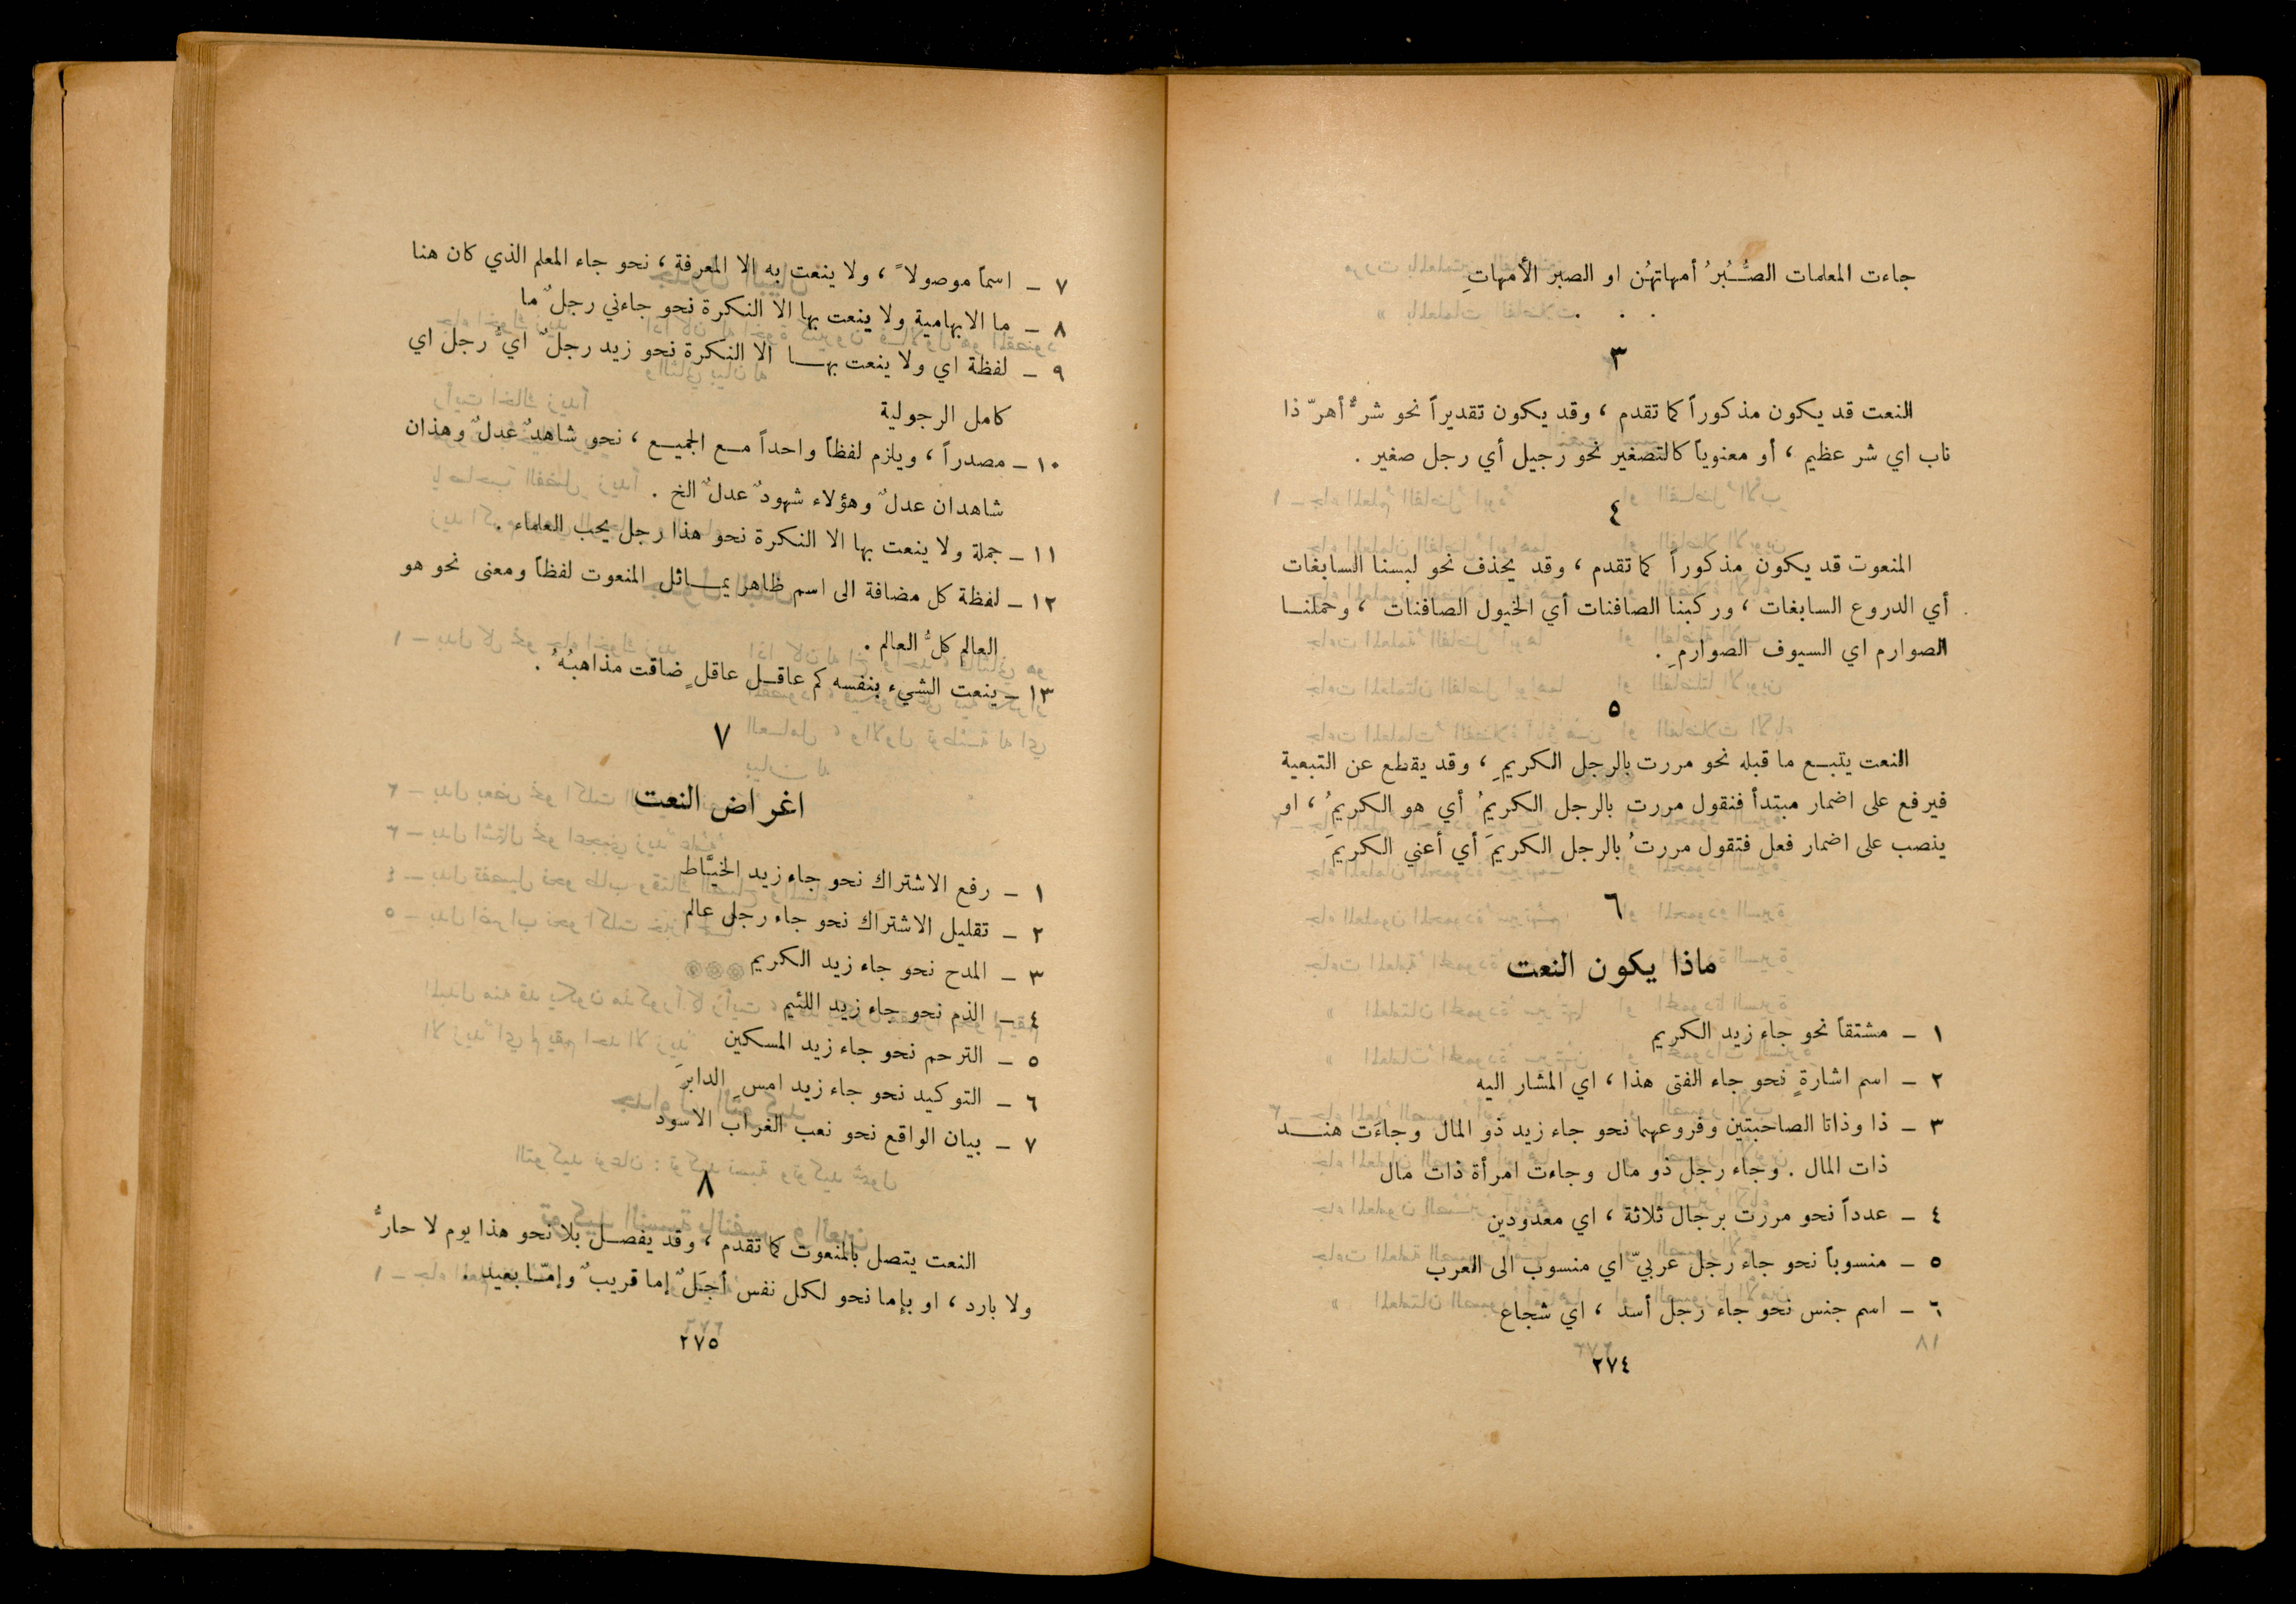 جاءت المعلمات الصُّبُرُ أمهاتهُن او الصبر الأمهاتِ
. . .
٣
النعت قد يكون مذكوراً كما تقدم ، وقد يكون تقديراً نحو شرٌّ أهرّ ذا
ناب اي شر عظيم ، أو معنوياً كالتصغير نحو رجيل أي رجل صغير .
٤
المنعوت قد يكون مذكوراً كما تقدم ، وقد يحذف نحو لبسنا السابغات
أي الدروع السابغات ، وركبنا الصافنات أي الخيول الصافنات ، وحملنا
الصوارم اي السيوف الصوارمِ .
٥
النعت يتبع ما قبله نحو مررت بالرجل الكريمِ ، وقد يقطع عن التبعية
فيرفع على اضمار مبتدأ فنقول مررت بالرجل الكريمُ أي هو الكريمُ ، او
ينصب على اضمار فعل فتقول مررتُ بالرجل الكريمَ أي أعني الكريمَ
٦
ماذا يكون النعت
١ – مشتقاً نحو جاء زيد الكريم
٢ – اسم اشارةٍ نحو جاء الفتى هذا ، اي المشار اليه
٣ – ذا وذاتا الصاحبتين وفروعهما نحو جاء زيد ذو المال وجاءَت هند
ذات المال . وجاء رجل ذو مال وجاءت امرأة ذات مال
٤ – عدداً نحو مررت برجال ثلاثة ، اي معدودين
٥ – منسوباً نحو جاء رجل عربيّ اي منسوب الى العرب
٦ – اسم جنس نحو جاء رجل أسد ، اي شجاع
٢٧٤
٧ – اسماً موصولاً ، ولا ينعت به الا المعرفة ، نحو جاء المعلم الذي كان هنا
٨ – ما الابهامية ولا ينعت بها الا النكرة نحو جاءني رجلٌ ما
٩ – لفظة اي ولا ينعت بها الا النكرة نحو زيد رجلٌ ايُّ رجل اي
كامل الرجولية
١٠ – مصدراً ، ويلزم لفظاً واحداً مع الجميع ، نحو شاهدٌ عدلٌ وهذان
شاهدان عدلٌ وهؤلاء شهودٌ عدلٌ الخ .
١١ – جملة ولا ينعت بها الا النكرة نحو هذا رجل يحب العلماء .
١٢ – لفظة كل مضافة الى اسم ظاهر يماثل المنعوت لفظاً ومعنى نحو هو
العالم كلُّ العالم .
١٣ – ينعت الشيء بنفسه كم عاقل عاقلٍ ضاقت مذاهبُهُ .
٧
اغراض النعت
١ – رفع الاشتراك نحو جاء زيد الخيَّاط
٢ – تقليل الاشتراك نحو جاء رجل عالم
٣ – المدح نحو جاء زيد الكريم
٤ – الذم نحو جاء زيد اللئيم
٥ – الترحم نحو جاء زيد المسكين
٦ – التوكيد نحو جاء زيد امسِ الدابرَ
٧ – بيان الواقع نحو نعب الغراب الاسود
٨
النعت يتصل بالمنعوت كما تقدم ، وقد يفصل بلا نحو هذا يوم لا حارُّ
ولا بارد ، او بإما نحو لكل نفس أجَلٌ إما قريبٌ وإمّا بعيد .
٢٧٥